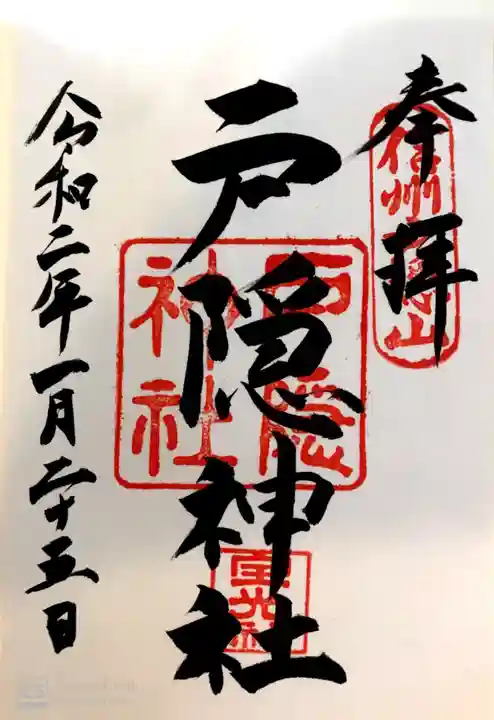 奉拝
信州戸隠山
戸隠神社
戸隠神社
宝光社
令和二年一月二十五日